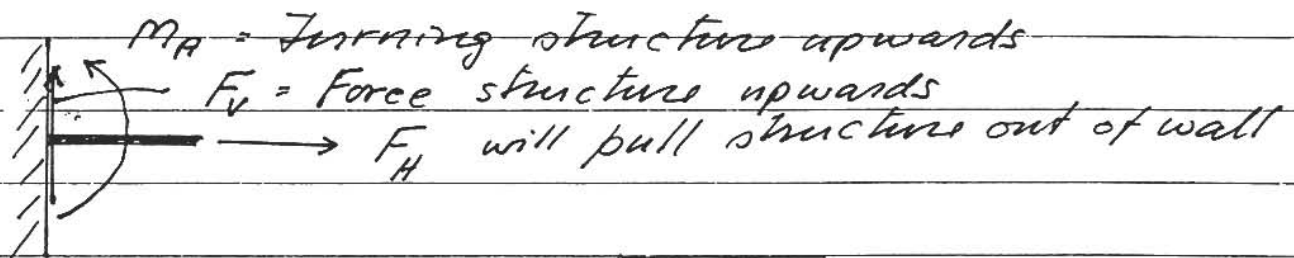 M_A = Turning structure upwards
F_V = Force structure upwards
F_H will pull structure out of wall